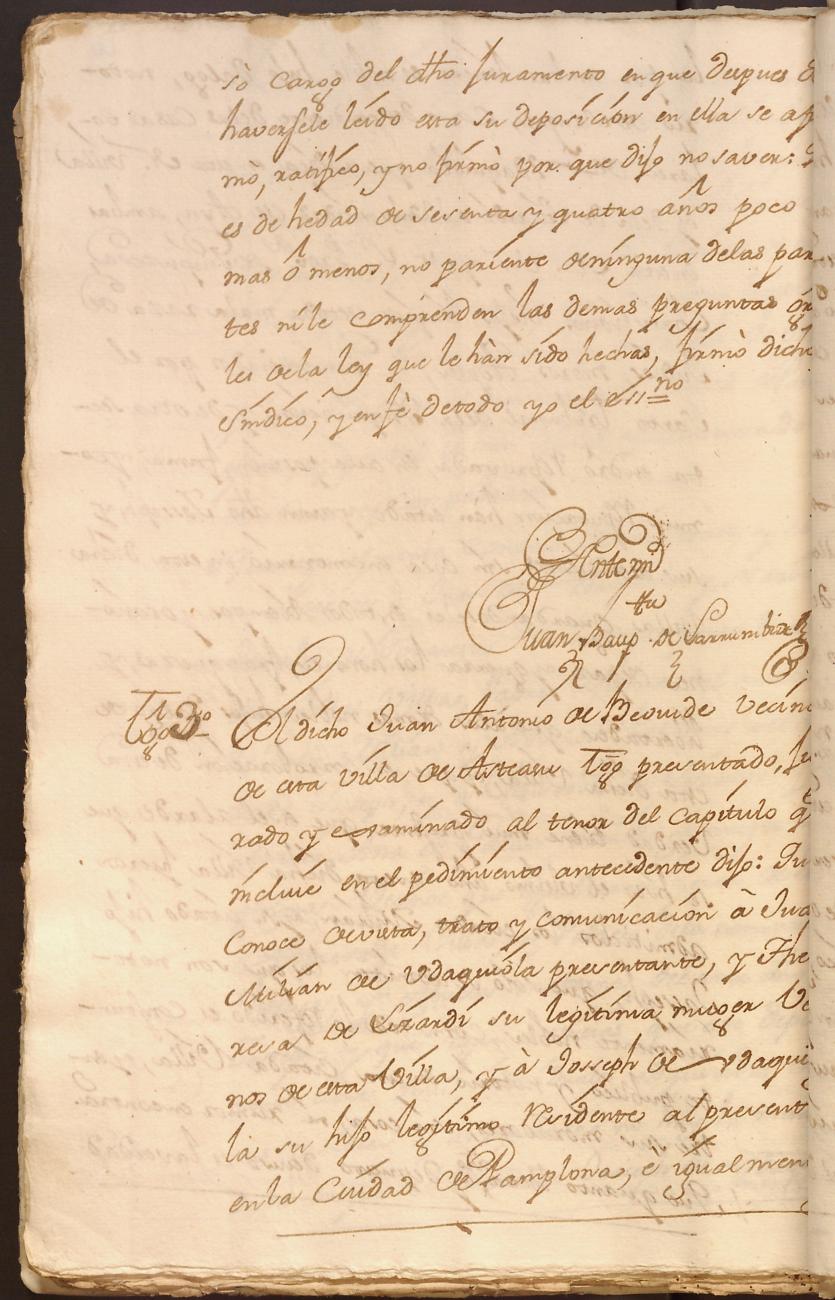 sò cargo del dho Juramento en que despues d
haversele leido esta su deposición en ella se afir
mò, ratifico, y no firmò por que dijo no saver: y
es de hedad de sesenta y quatro años poco
mas ò menos, no pariente de ninguna de las par
tes ni le comprenden las demas preguntas
les de la ley que le hàn sido hechas, firmò dicho
Sindico, y en fè de todo yo el ess.no
Antemi
Juan Baup.tta de Larrumbide
T.go 3.o El dicho Juan Antonio de Beovide vecino
de esta villa de Asteasu T.go presentado, Ju
rado y examinado al tenor del capitulo q.e
incluie en el pedimiento antecedente dijo: Que
Conoce de vista, trato y comunicación à Juan
Milián de Vdaquióla presentante, y The
resa de Lizardi su legitima muger Ve
nos de esta Villa, y à Joseph de Vdaquio
la su hijo legitimo residente al present
en la Ciudad de Pamplona, è igualmen